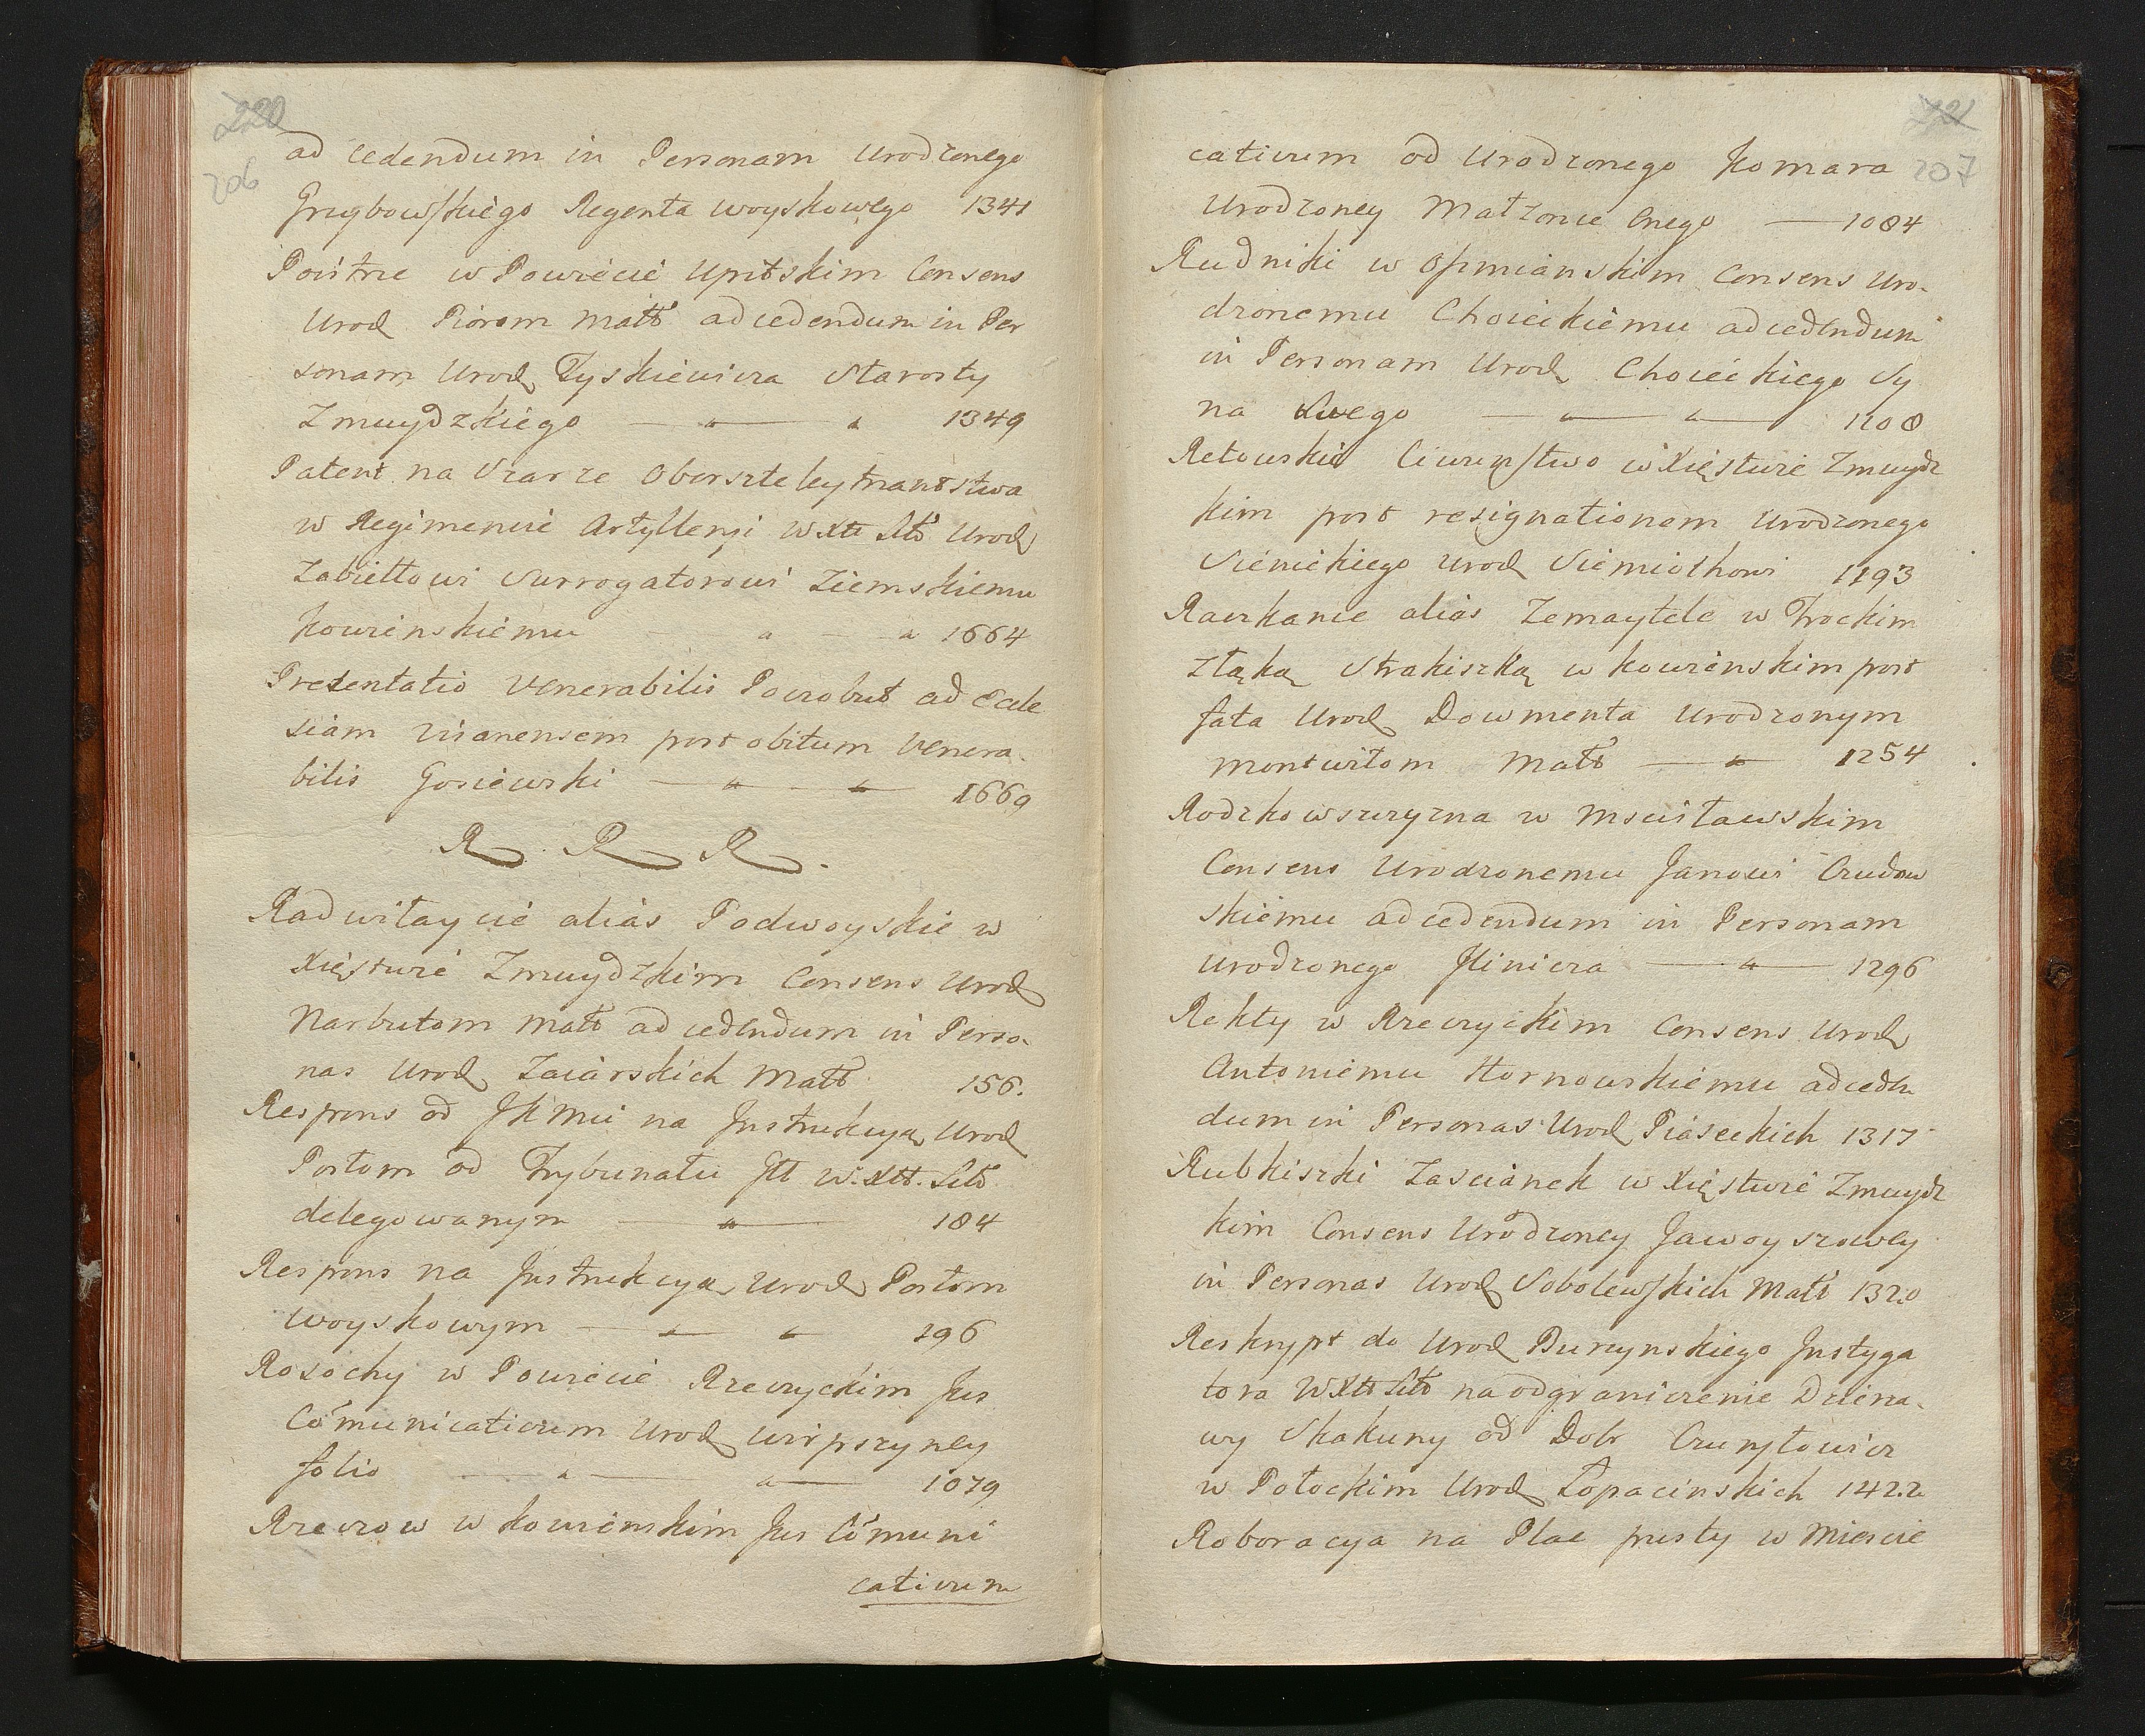 220
206
ad cedendum in Personam Urodzonego
Grzybowskiego Regenta woyskowego 1341
Poistrie w Powiecie Upitskim Consens
Urod Piorom Małż ad cedendum in Per
sonam Urod Tyskiewicza Starosty
Zmuydzkiego — " — " 1349
Patent na Szarze Obersztleytnantstwa
w Regimencie Artylleryi W Xtt Litt Urod
Zabiełłowi Surrogatorowi Ziemskiemu
Kowienskiemu " — " 1664
Prezentatio Venerabilis Poczobut ad Eccle
siam post obitum Venera
bilis Gosiewski — " — " 1669
R. R. R.
Radwiłaycie alias Podwoyskie w
Xięstwie Zmuydzkim Consens Urod
Narbutom Małż ad cedendum in Perso-
nas Urod Zaiarskich Małż 156.
Respons od JKMci na Instrukcyą Urod
Posłom od Trybunału Gł W. Xtt. Litt
delegowanym — " — 184
Respons na Instrukcyą Urod Posłom
woyskowym — " — " 196
Rosochy w Powiecie Rzeczyckim Jus
Comunicativum Urod Wirpszyney
folio — " — " — 1079
Rzeczow w Kowienskim Jus Comuni
cativum
221
207
cativum od Urodzonego Komara
Urodzoney Małżonce Onego — 1084
Rudniki w Oszmianskim Consens Uro-
dzonemu Choieckiemu ad cedendum
in Personam Urod Choieckiego Sy
na Swego — " — " — 1108
Retowskie Ciwunstwo w Xięstwie Zmuydz
kim post resignationem Urodzonego
Sienickiego Urod Siemiothowi 1193
Raczkanie alias Zemaytele w Trockim
z łąką Strakiszką w Kowienskim post
fata Urod Dowmenta Urodzonym
Montwiłom Małż — " — 1254
Rodzkowszczyzna w Mscisławskim
Consens Urodzonemu Janowi Czudow
skiemu ad cedendum in Personam
Urodzonego Jlinicza — " — 1296
Rekty w Rzeczyckim Consens Urod
Antoniemu Hornowskiemu ad ceden
dum in Personas Urod Piaseckich 1317
Rubkiszki Zascianek w Xięstwie Zmuydz
kim Consens Urodzoney Jawoyszowey
in Personas Urod Sobolewskich Małż 1320
Reskrypt do Urod Burzynskiego Instyga
tora W Xtt Litt na odgraniczenie Dzierża-
wy Skakuny od Dobr
w Połockim Urod Łopacinskich 1422
Roboracya na Plac pusty w Miescie